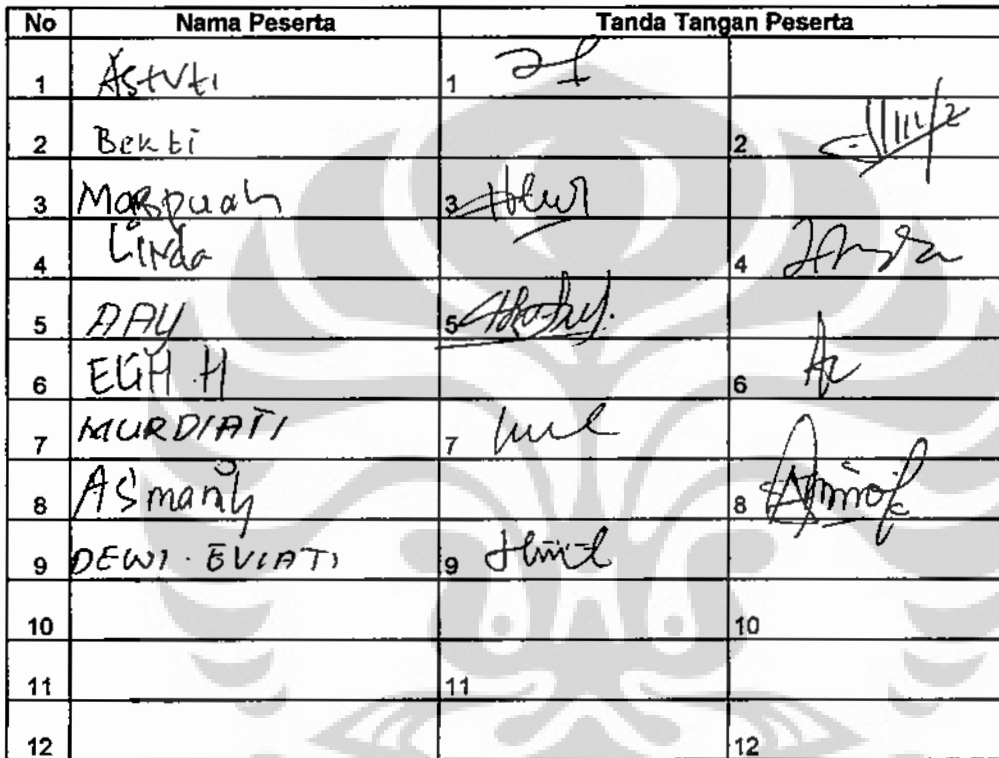 No Nama Peserta Tanda Tangan Peserta
1 Astuti 1
2 Bekti 2
3 Marpuah 3
4 Linda 4
5 AAY 5
6 EGH H 6
7 MURDIATI 7
8 ASmanih 8
9 DEWI . EVIATI 9
10 10
11 11
12 12